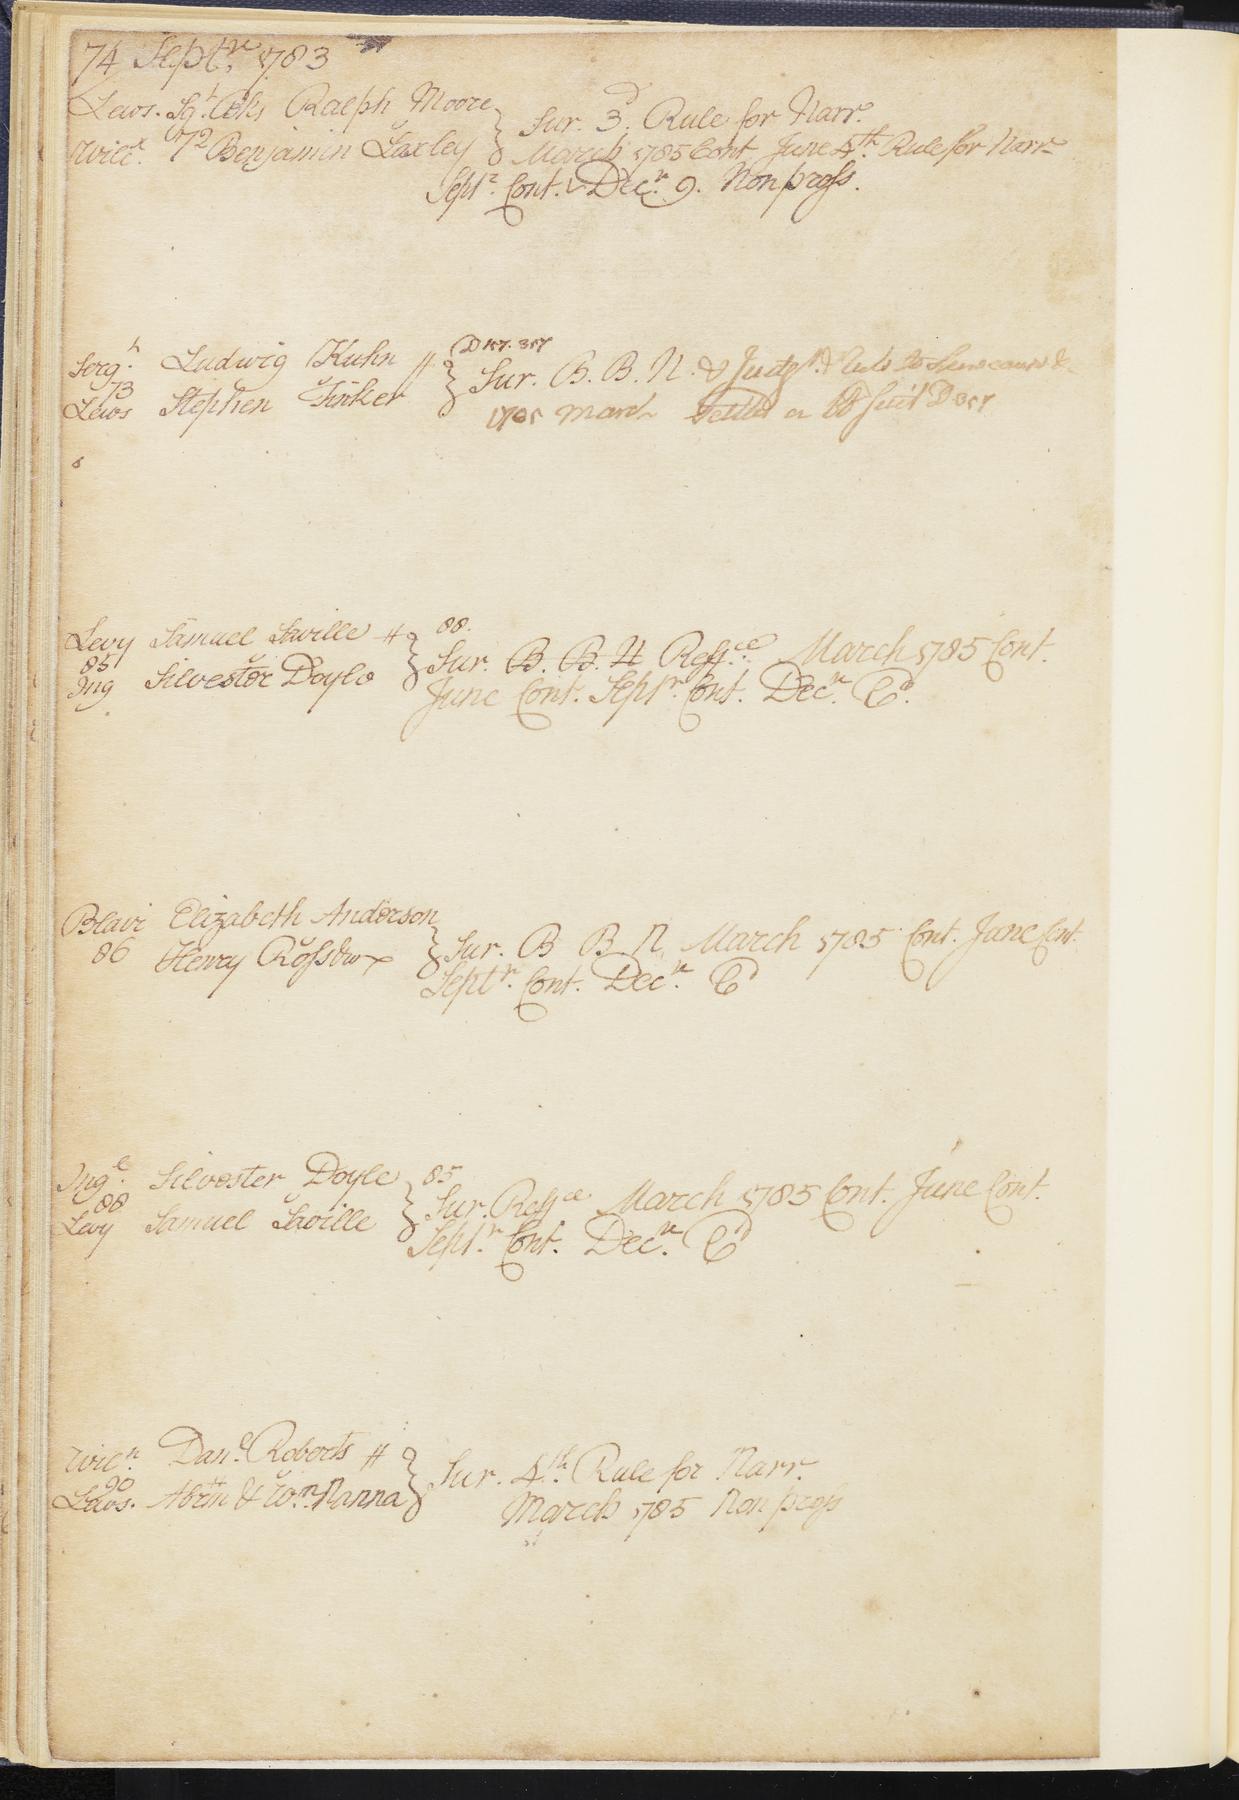 74 Septr. 1783
Lews. Ralph Moore } Sur. 3d. Rule for Narr.
Wilcx. 72 Benjamin Laxley } March 1785 Cont June 4th. Rule for Narr
Septr. Cont. Decr. 9. Non pross.
Serg.t Ludwig Kuhn # } D 157. 357
73 Sur. B. B. N. & Judgt. & Rule to Shew cause &
Lews Stephen Tinker 1785 March D 357
Levy Samuel Saville # } 88.
85 Sur. B. B. H Refce March 1785 Cont.
Ing Silvester Doyle June Cont. Septr. Cont. Decr. C.
Blair Elizabeth Anderson
86 Henry } Sur. B B N March 1785 Cont. June Cont.
Septr. Cont. Decr. C
Inge. Silvester Doyle } 85
88 Sur. Refce March 1785 Cont. June Cont.
Levy Samuel Saville Septr. Cont. Decr. C
Wilcx. Danl. Roberts # } Sur. 4th. Rule for Narr.
90
Lews. Abrm & Wm. Hanna March 1785 Non pross